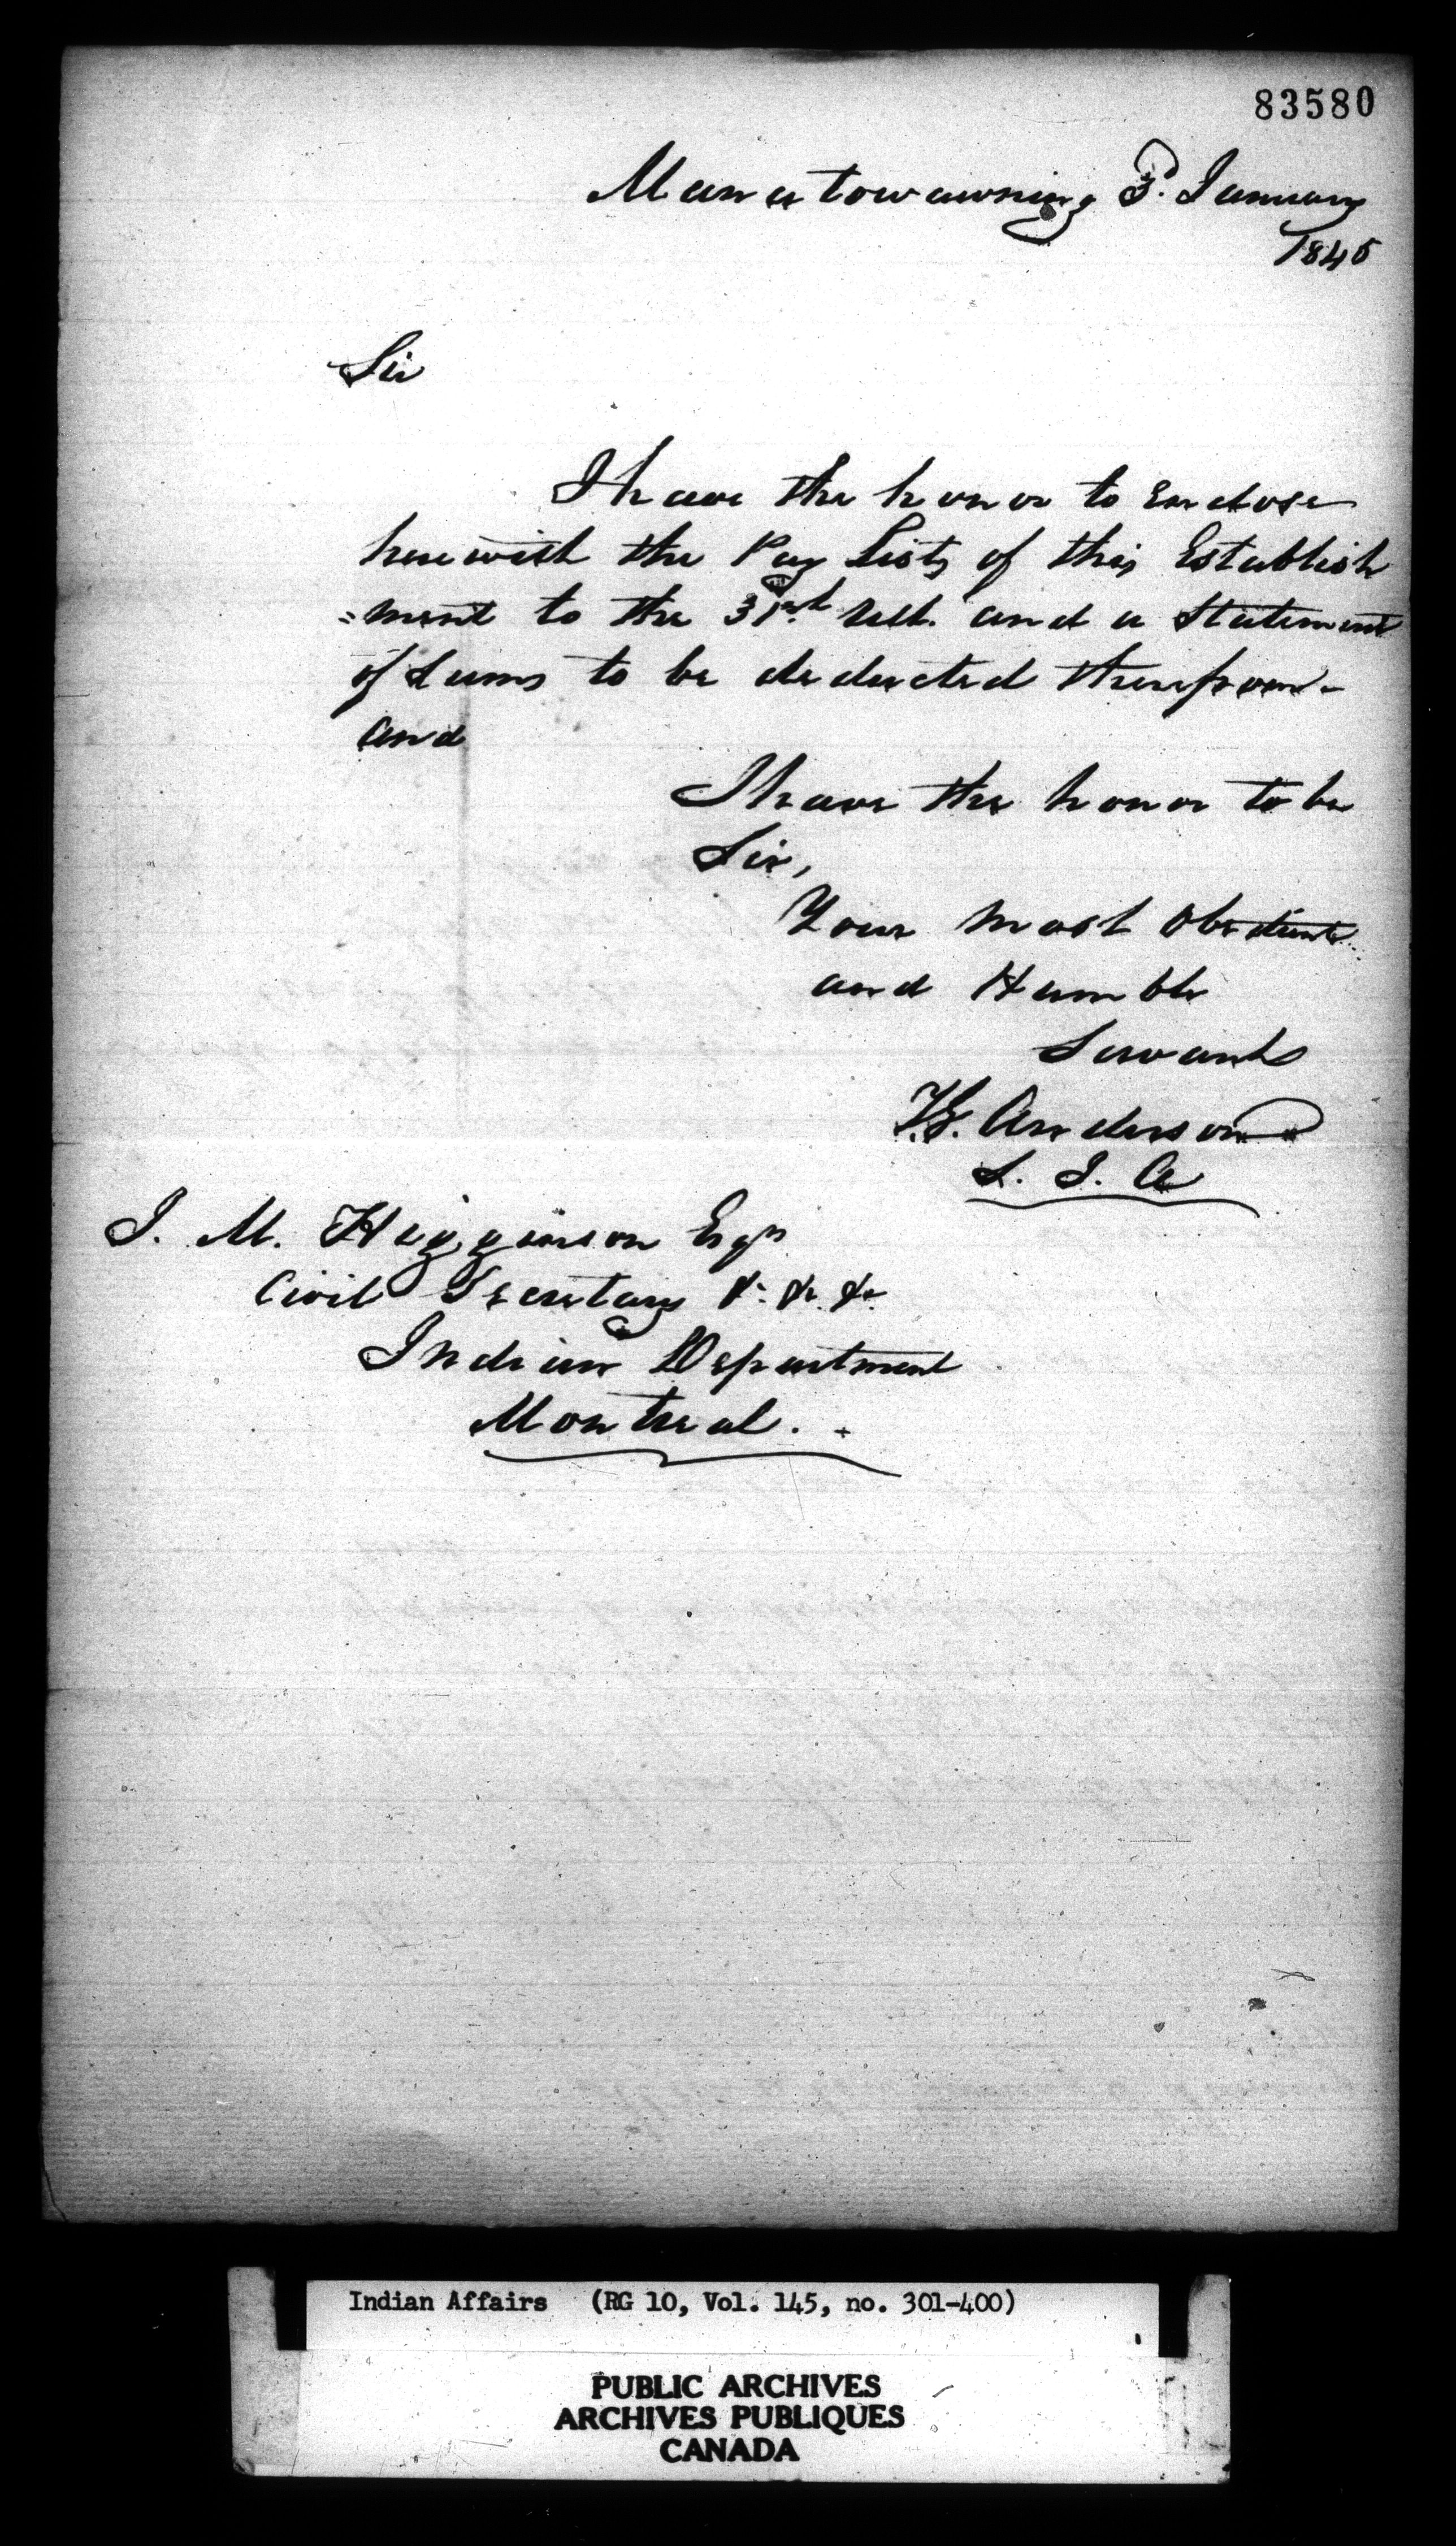 83580
Manatowawning 3d. January
1845
Sir
I have the honor to enclose
herewith the Pay Lists of this Establish
=ment to the 31st. Ult. and a Statement
of Sums to be deducted therefrom -
and
I have the honor to be
Sir,
Your most Obedient
and Humble
Servant
T.G. Anderson
S. I. A
J. M. Higginson Esqr
Civil Secretary &. &c. &c.
Indian Department
Montreal. .
Indian Affairs (RG 10, Vol. 145, no. 301-400)
PUBLIC ARCHIVES
ARCHIVES PUBLIQUES
CANADA